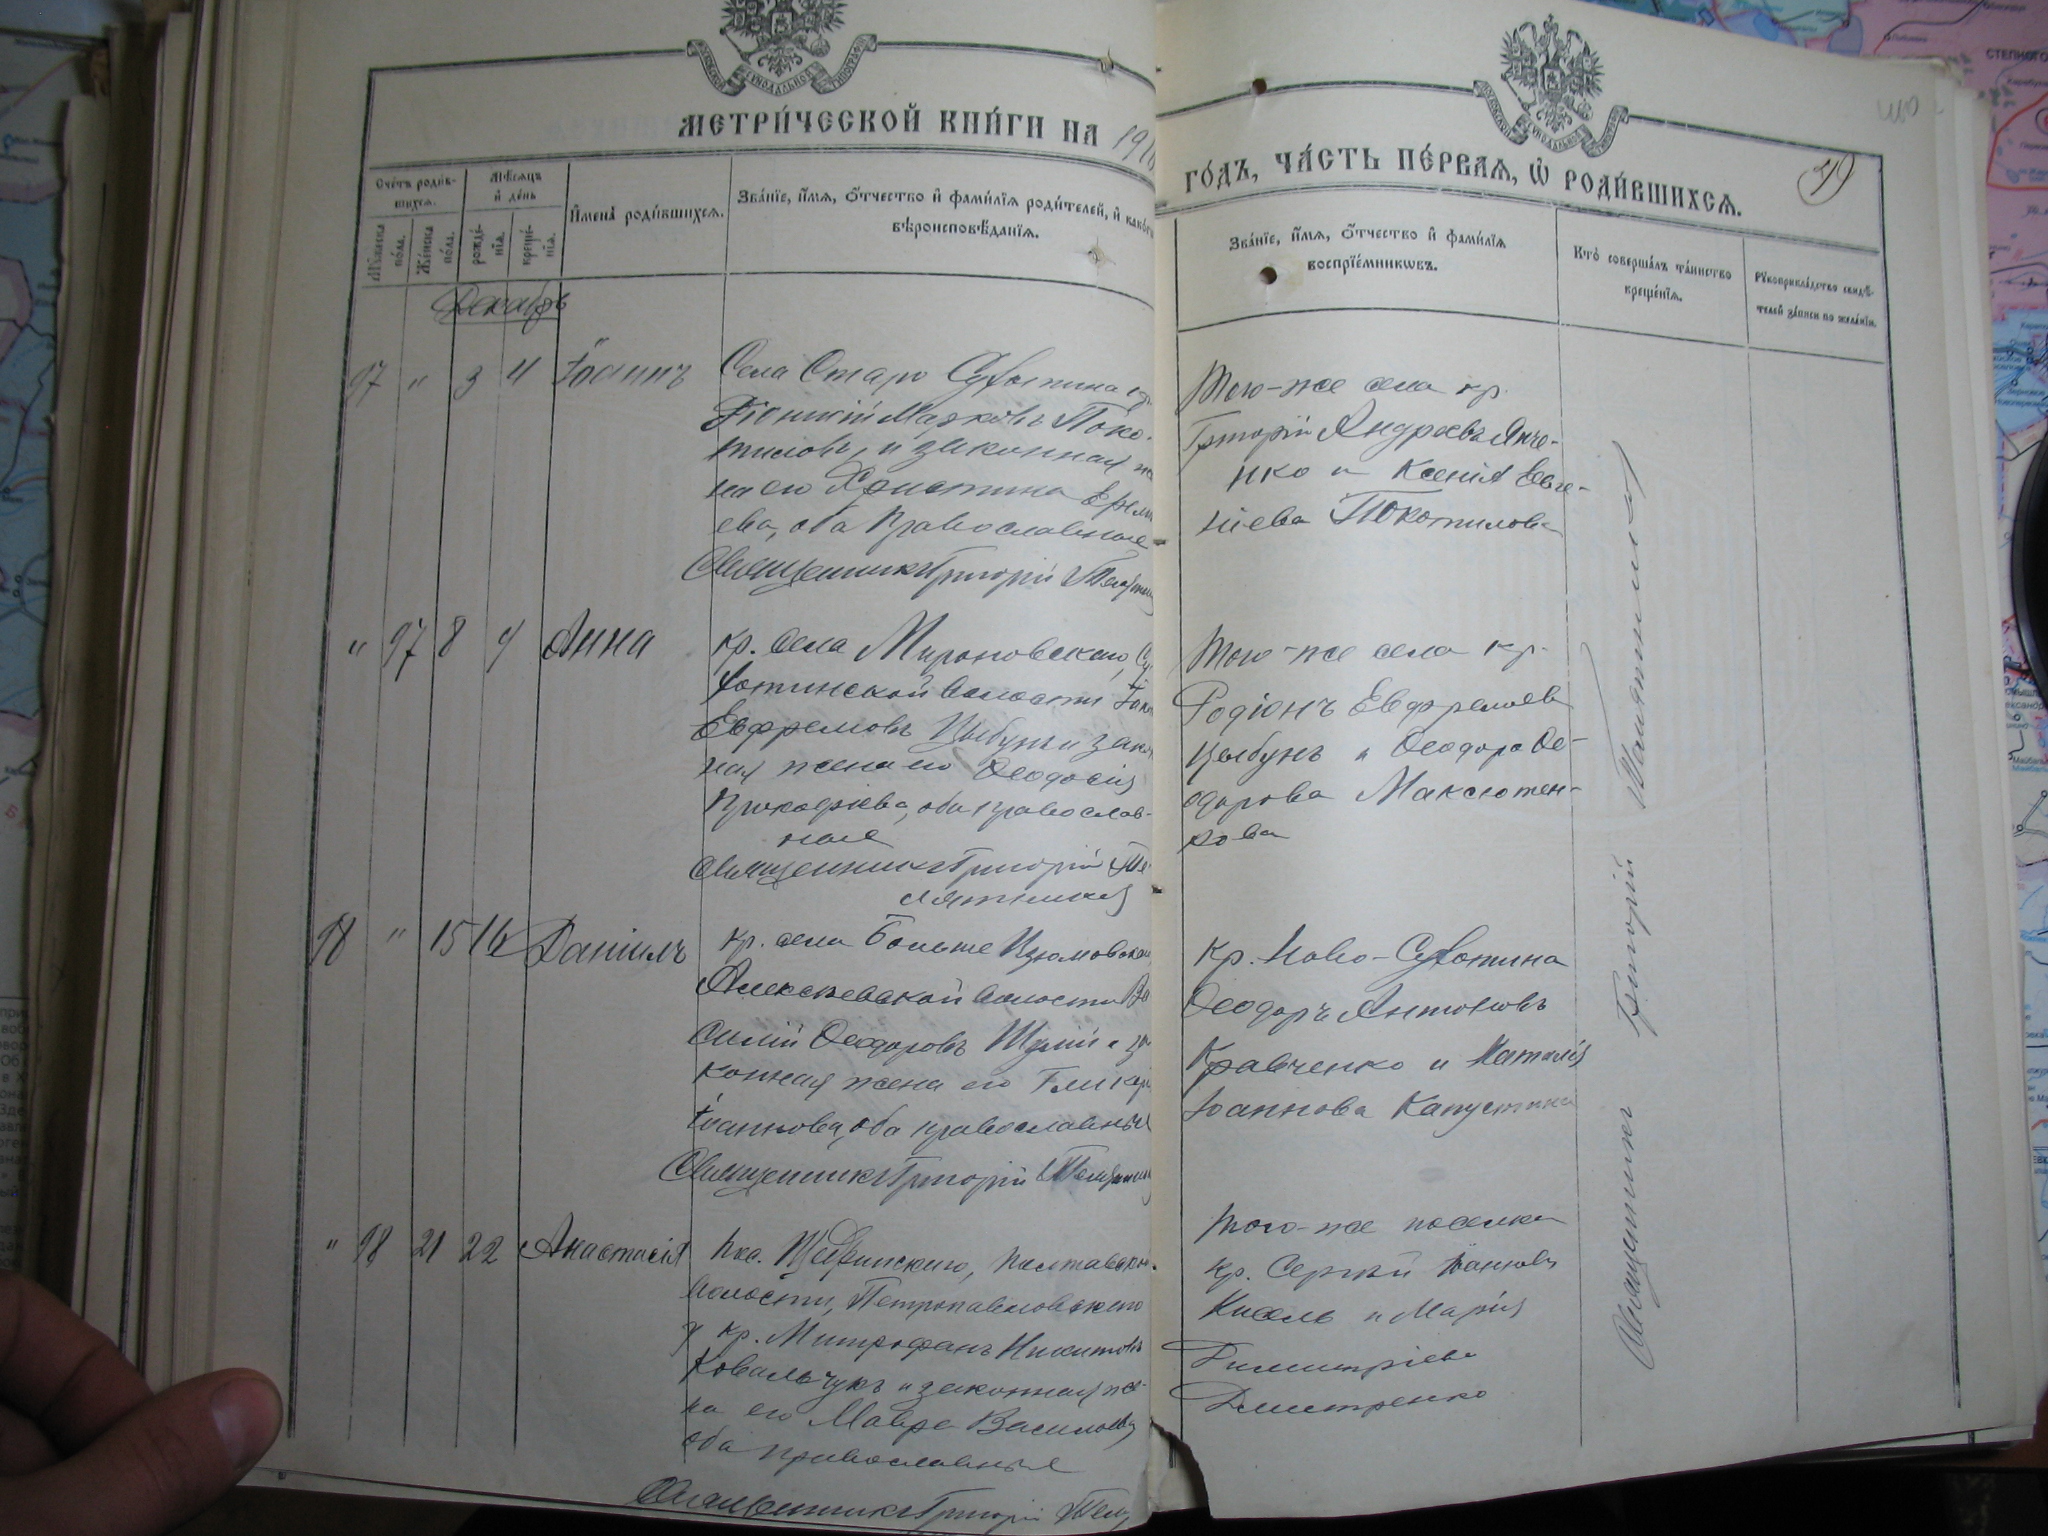 МЕТРИ́ЧЕСКОЙ КНИ́ГИ НА 191
ГО́ДЪ, ЧА́СТЬ ПЕ́РВАЯ, Ѡ РОДИ́ВШИХСЯ.
Сче́тъ роди́в-
шихся.
Му́жеска
по́ла.
Же́нска
по́ла.
Мѣ́сяцъ
и де́нь
рожде́-
нія.
креще́-
нія.
Имена̀ роди́вшихся.
Зва́ніе, и́мя, о́тчество и фами́лія роди́телей, и како́го
вѣроисповѣ́данія.
Зва́ніе, и́мя, о́тчество и фами́лія
воспріе́мниковъ.
Кто̀ соверша́лъ та́инство
креще́нія.
Рукоприкла́дство свидѣ́-
телей за́писи по жела́нію.
Декабрь
97 " 3 4 Іоаннъ
Села Старо Суботина кр.
Марковъ Поко-
тиловъ, и законная же
на его Христина Ереме
ева, оба православные
Священникъ Григорій
Того-же села кр.
Григорій Андреевъ Янче-
нко и Ксенія Евге-
ніева Покотилова
" 97 8 9 Анна
кр. села Мироновскаго, Су
ботинской волости
Евфремовъ Цыбунь и закон
ная жена его Ѳеодосія
Прокофіева, оба православ-
ные
Священникъ Григорій
Того-же села кр.
Родіонъ Евфремовъ
Цыбунь и Ѳеодора Ѳе-
одорова Максютен-
кова
98 " 15 16 Даніилъ
кр. села Больше Изюмовскаго
Алексѣевской волости Ва
силій Ѳеодоровъ и за
конная жена его Гликерія
Іоаннова, оба православные
Священникъ Григорій
Кр. Ново-Суботина
Ѳеодоръ Антоновъ
Кравченко и Наталія
Іоаннова Капустина
" 98 21 22 Анастасія
Пос. Полтавской
волости, Петропавловскаго
у кр. Митрофанъ Никитовъ
Ковальчукъ и законная же-
на его Мавра Василіева
оба православные
Священникъ Григорій
того-же поселка
кр. Сергій Іоанновъ
Кисель и Марія
Димитріева
Дмитренко
Священникъ Григорій